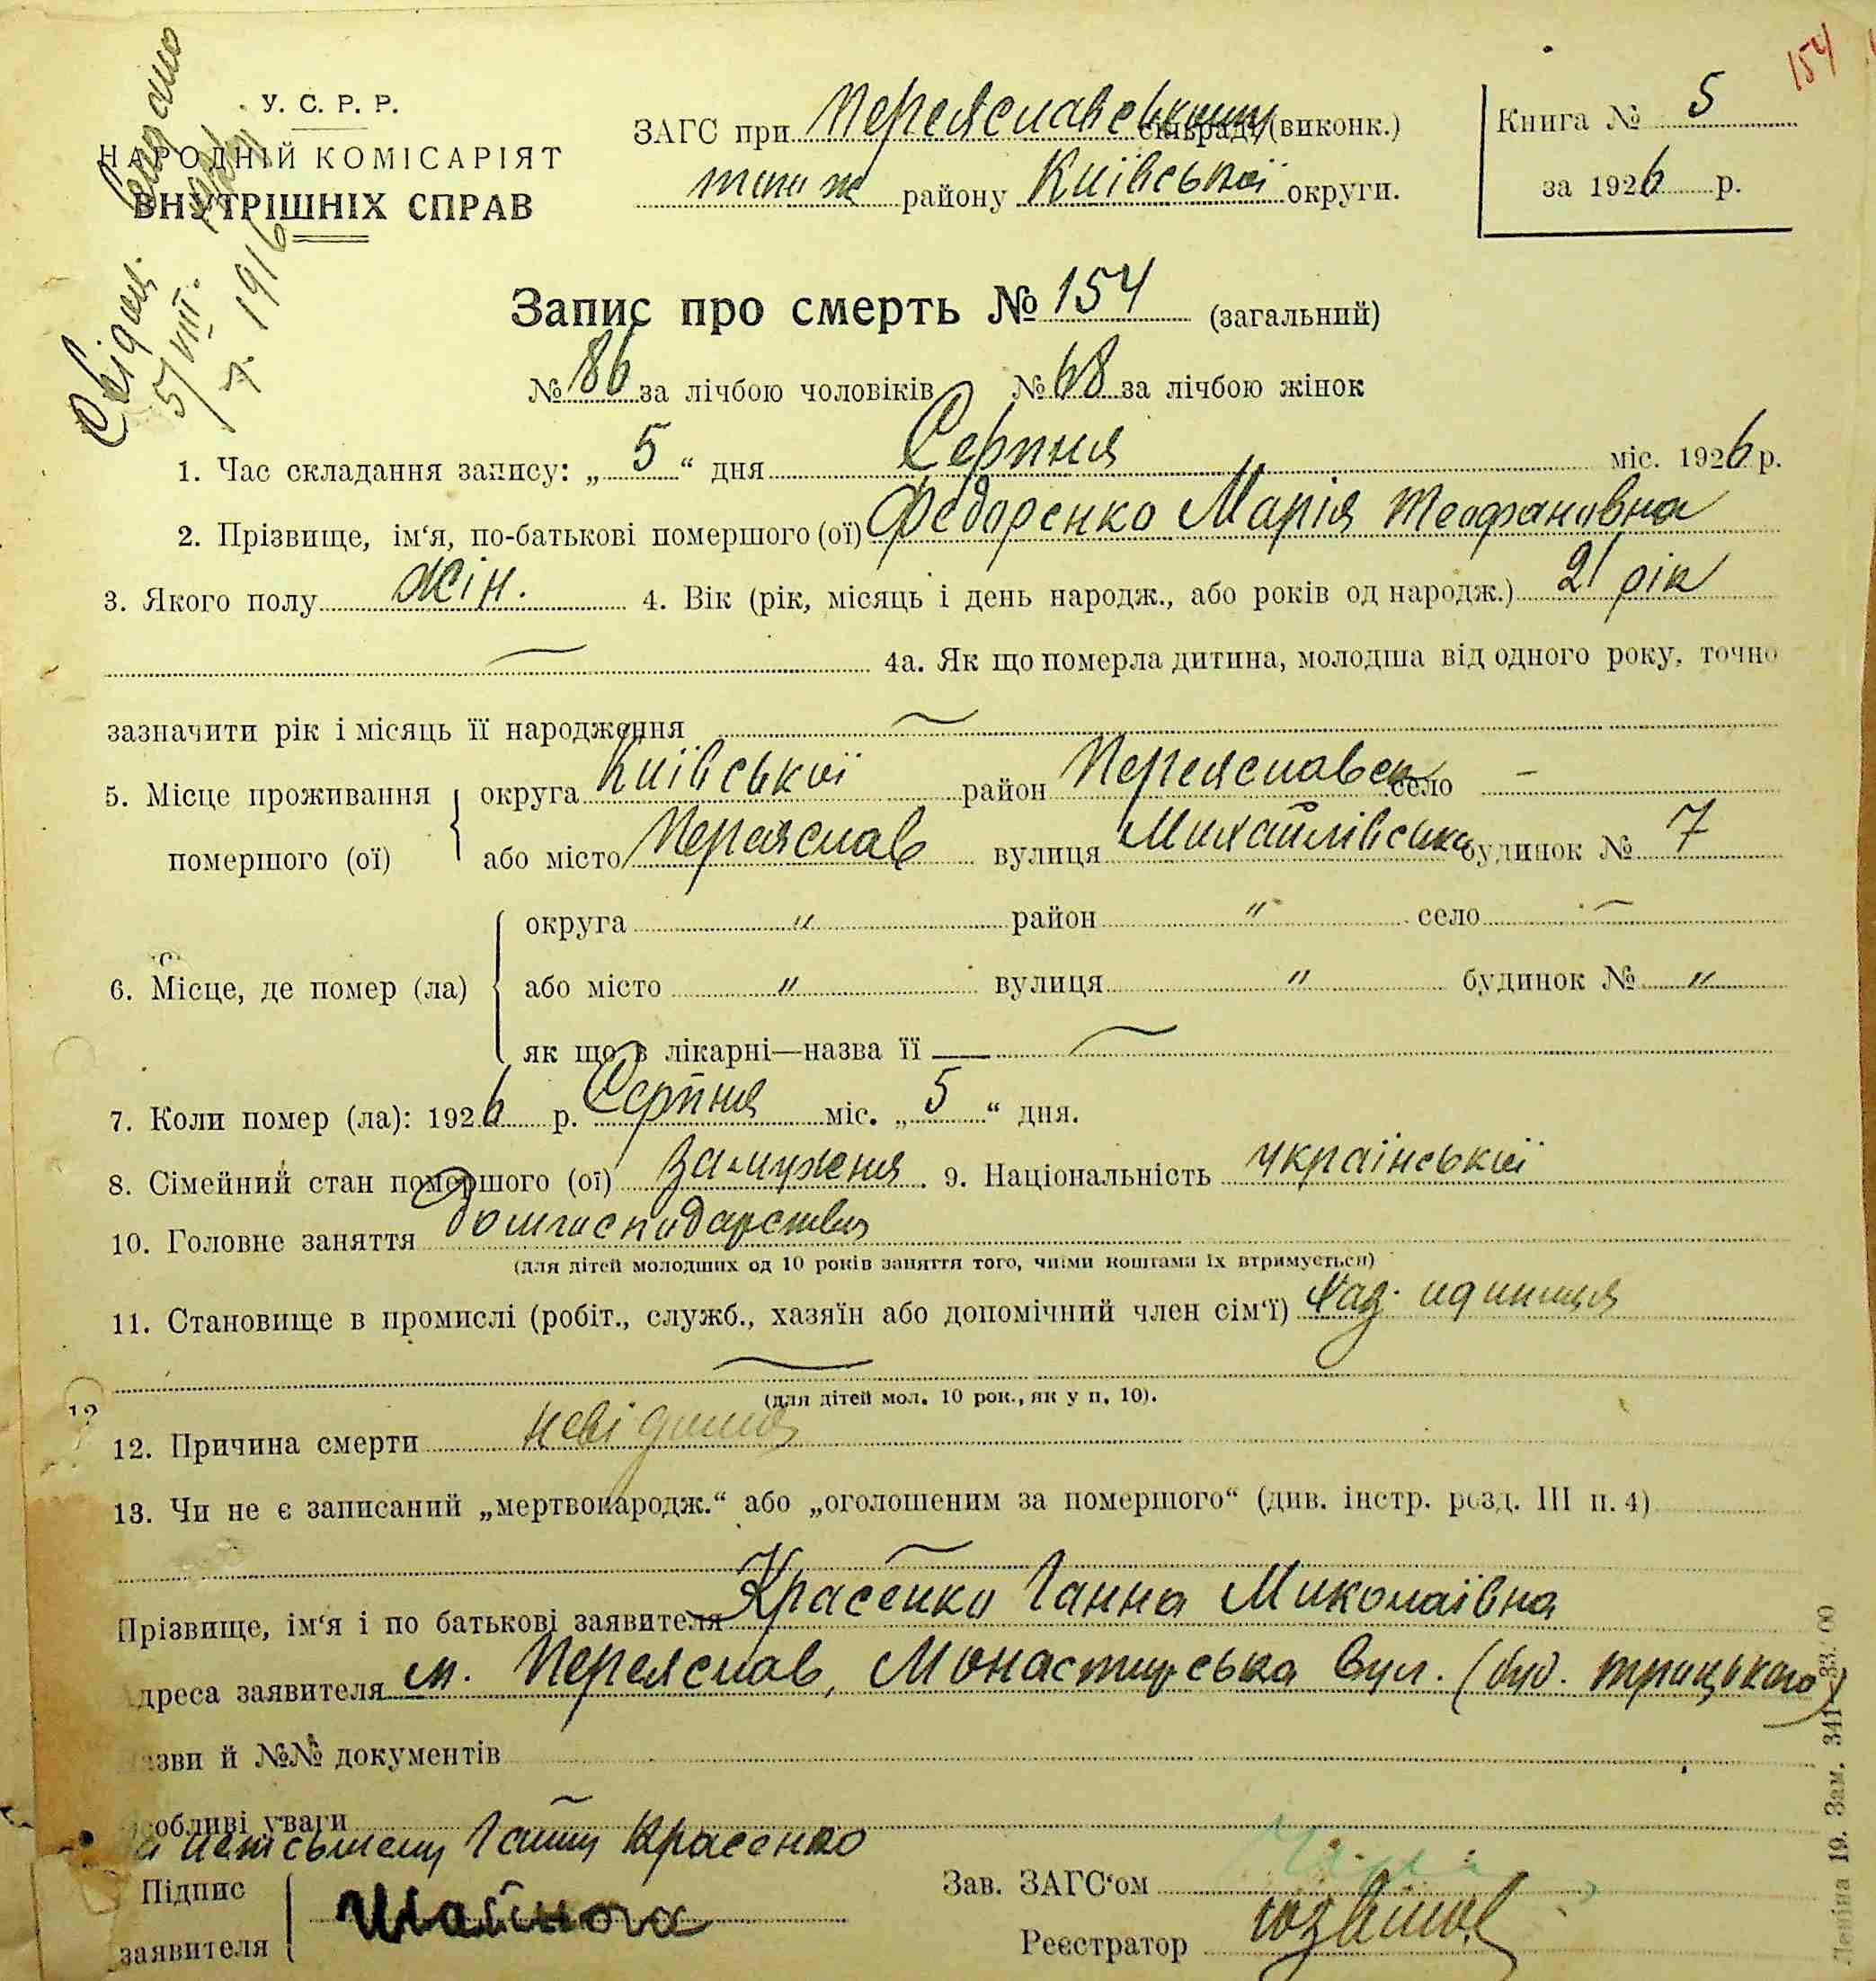 154
У. С. Р. Р.
НАРОДНІЙ КОМІСАРІЯТ
ВНУТРІШНІХ СПРАВ
5/VIII.
ЗАГС при Переяславському сільраді (виконк.)
того ж району Київської округи.
Книга № 5
за 1926 р.
Запис про смерть № 154 (загальний)
№ 86 за лічбою чоловіків № 68 за лічбою жінок
1. Час складання запису: „ 5 “ дня Серпня міс. 1926 р.
2. Прізвище, ім‘я, по-батькові помершого (ої) Федоренко Марія Теофановна
3. Якого полу жін. 4. Вік (рік, місяць і день народж., або років од народж.) 21 рік
4а. Як що померла дитина, молодша від одного року, точно
зазначити рік і місяць її народження
5. Місце проживання помершого (ої) округа Київської район Переяславськ село —
або місто Переяслав вулиця Михайлівська будинок № 7
6. Місце, де помер (ла) округа " район " село —
або місто " вулиця " будинок № "
як що в лікарні—назва її —
7. Коли помер (ла): 1926 р. Серпня міс. „ 5 “ дня.
8. Сімейний стан помершого (ої) замужня. 9. Національність української
10. Головне заняття домгосподарство
(для дітей молодших од 10 років заняття того, чиїми коштами їх втримується)
11. Становище в промислі (робіт., служб., хазяїн або допомічний член сім‘ї)
(для дітей мол. 10 рок., як у п. 10).
12. Причина смерти невідома
13. Чи не є записаний „мертвонародж.“ або „оголошеним за помершого“ (див. інстр. розд. III п. 4)
Прізвище, ім‘я і по батькові заявителя Красенко Ганна Миколаївна
Адреса заявителя м. Переяслав, Монастирська вул. (буд. Троцького)
Назви й №№ документів
Особливі уваги
За неписьмену Ганну Красенко
Підпис заявителя
Зав. ЗАГС‘ом
Реєстратор